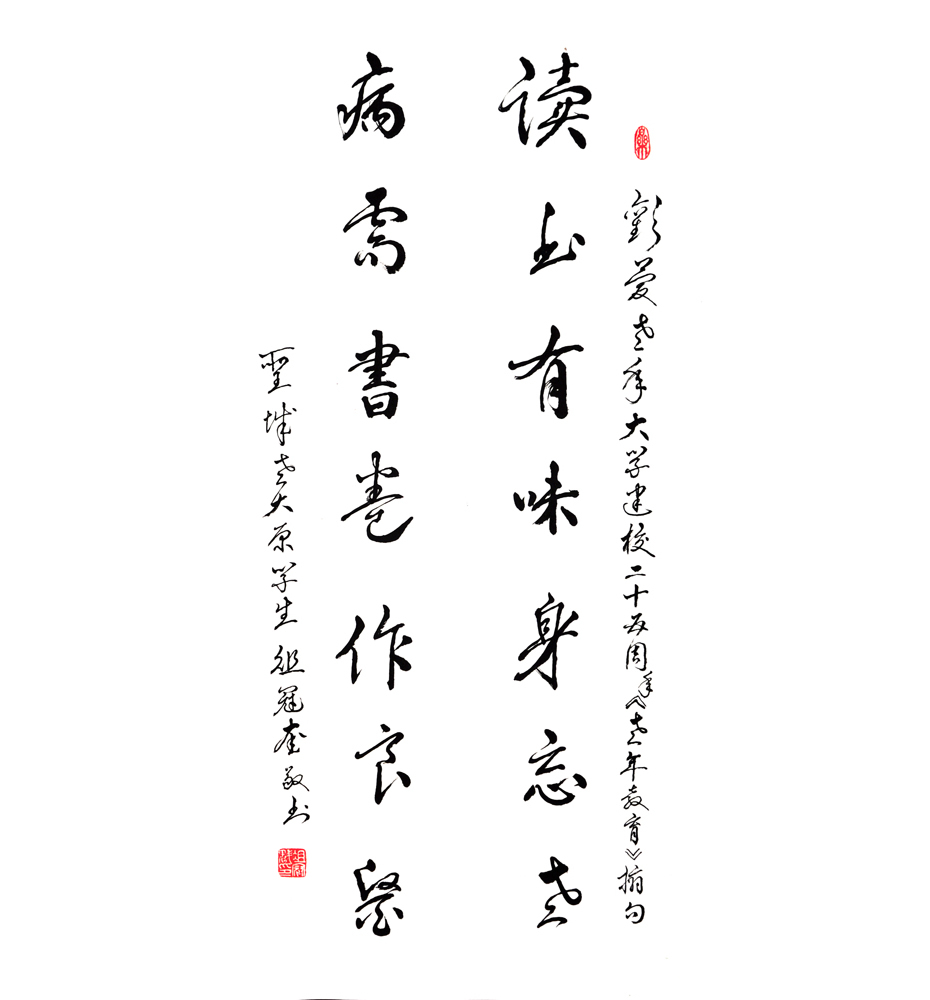 歡慶老年大学建校二十五周年《老年教育》摘句
读书有味身忘老
病需書卷作良醫
聖城老大原学生 祖冠奎敬书